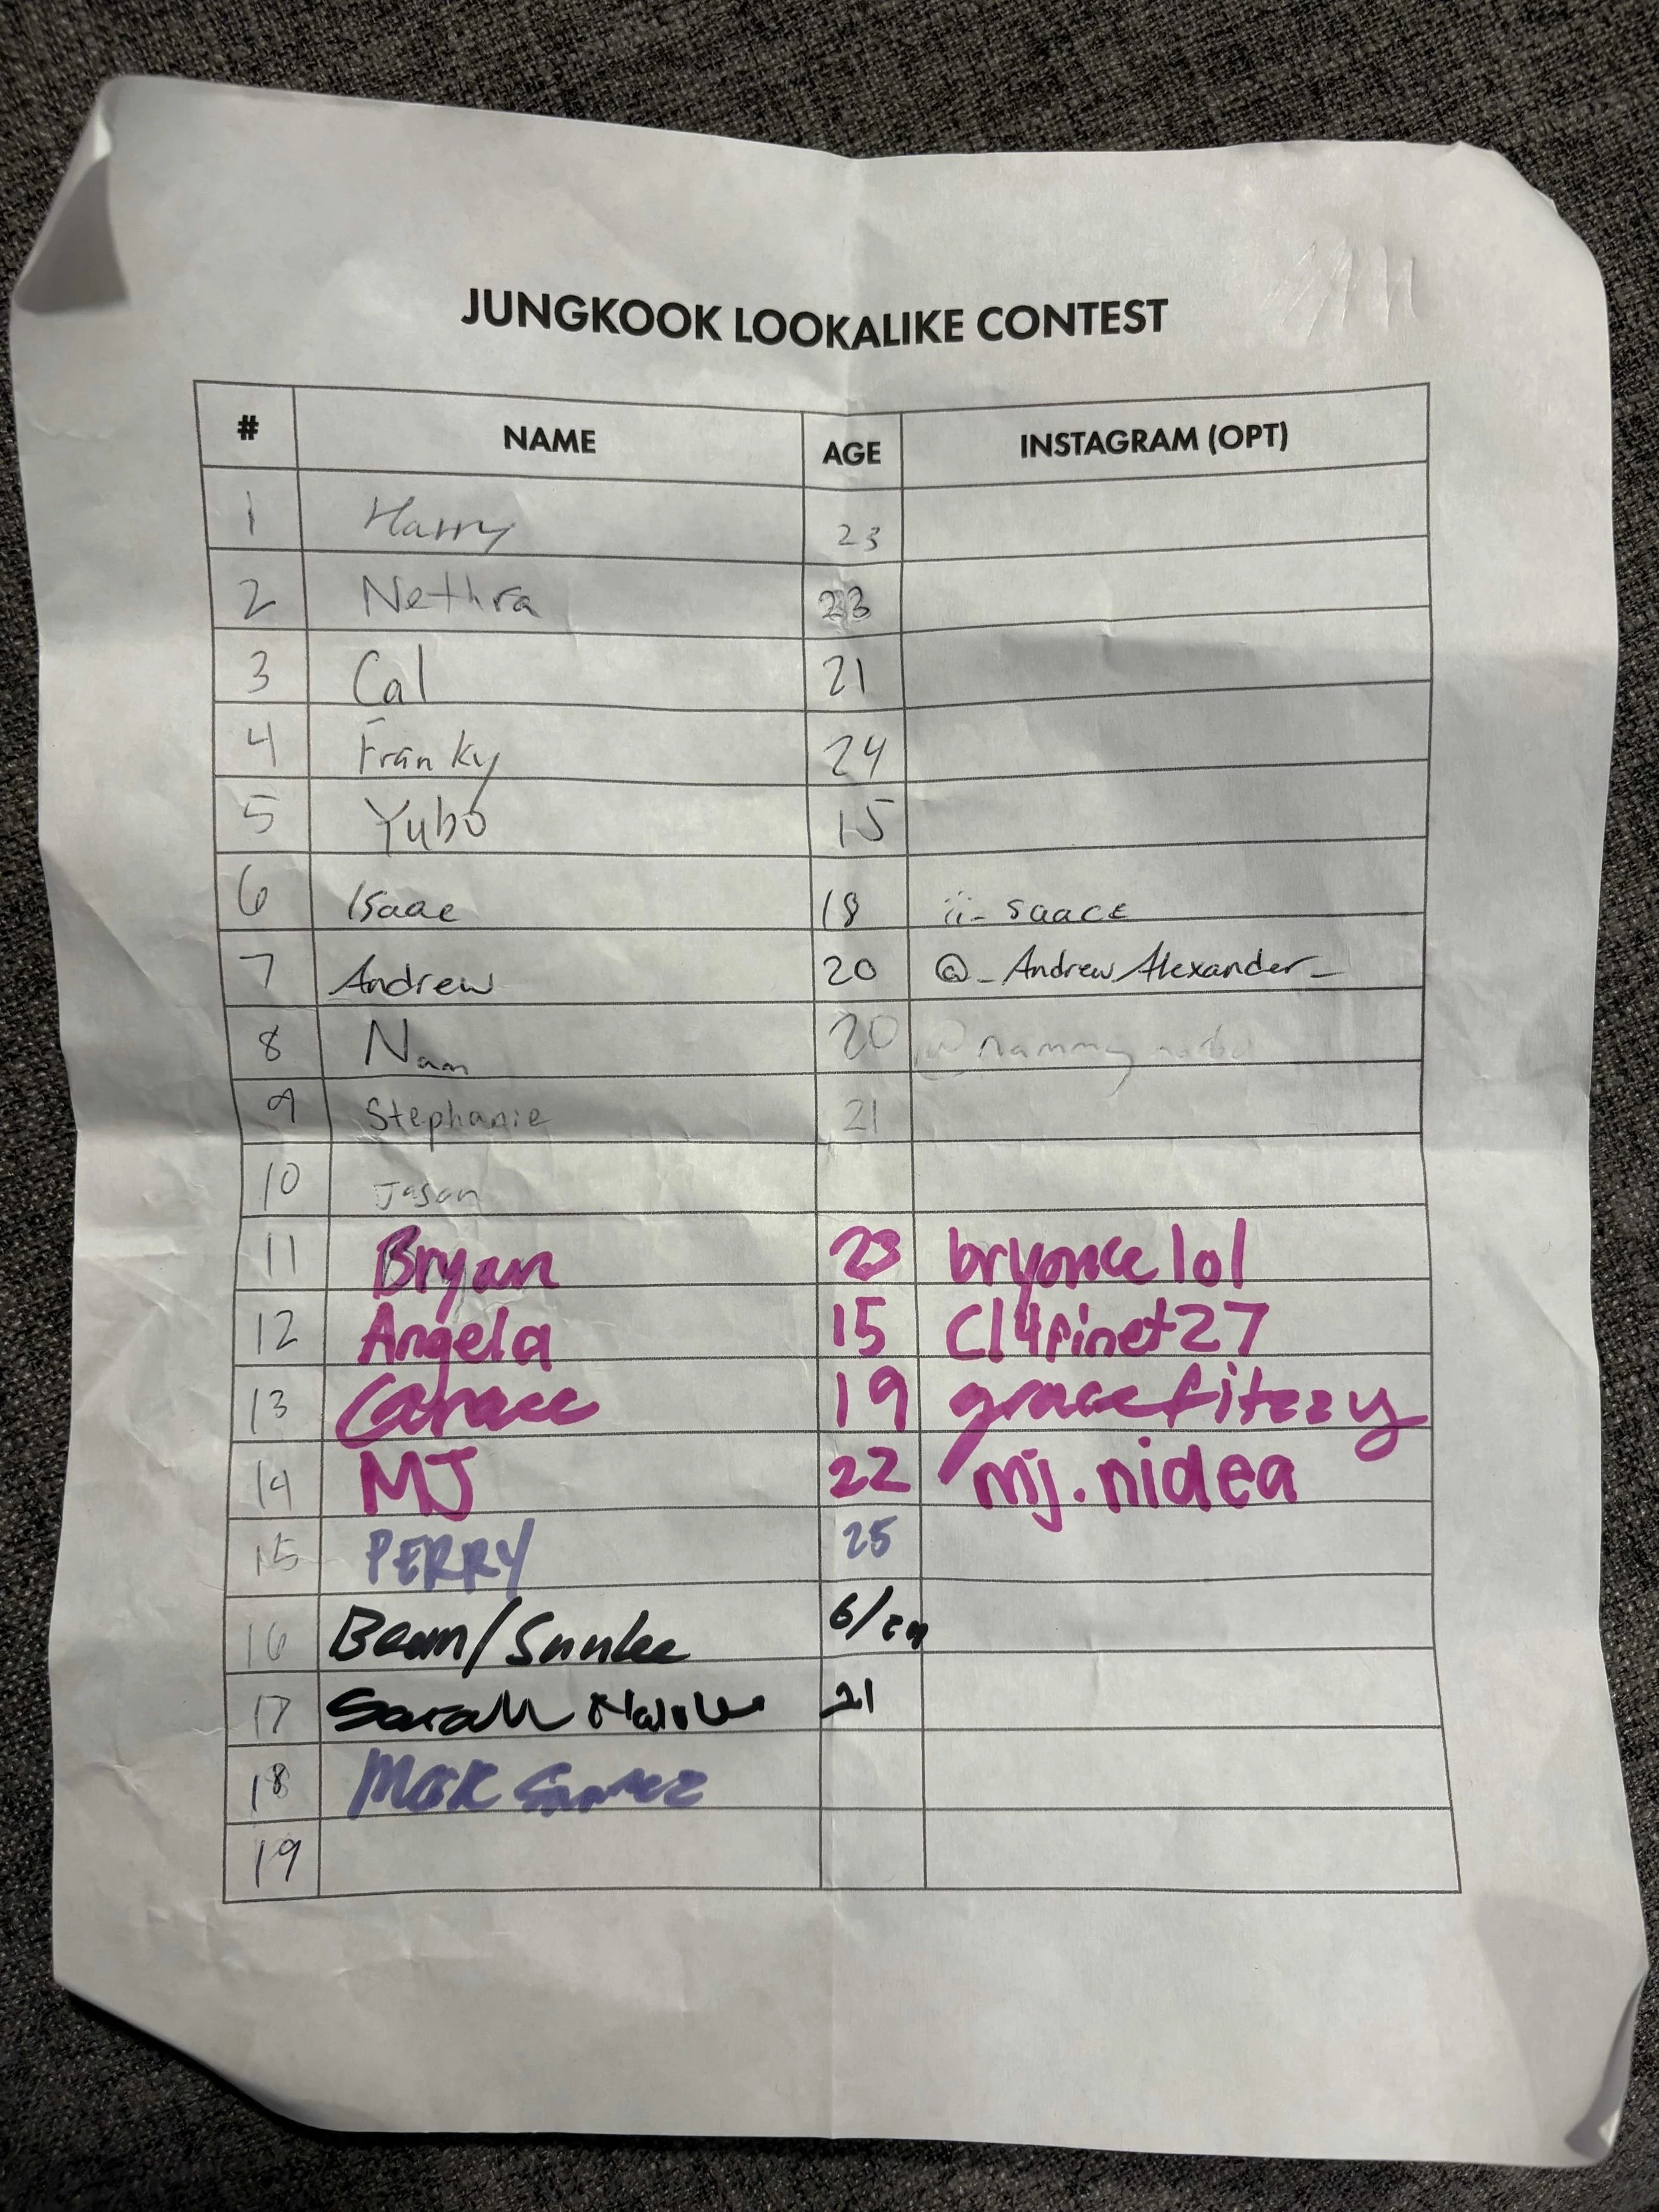 JUNGKOOK LOOKALIKE CONTEST
# NAME AGE INSTAGRAM (OPT)
1 Harry 23
2 Nethra 23
3 Cal 21
4 Franky 24
5 Yubo 15
6 Isaac 18 ii_saacc
7 Andrew 20 @_AndrewAlexander_
8 Nam 20
9 Stephanie 21
10 Jason
11 Bryan 23 bryonce lol
12 Angela 15 cl4rinet27
13 19 gracefitzzy
14 MJ 22 mj.nidea
15 PERRY 25
16 Beam/ 6/
17 Sarah 21
18
19